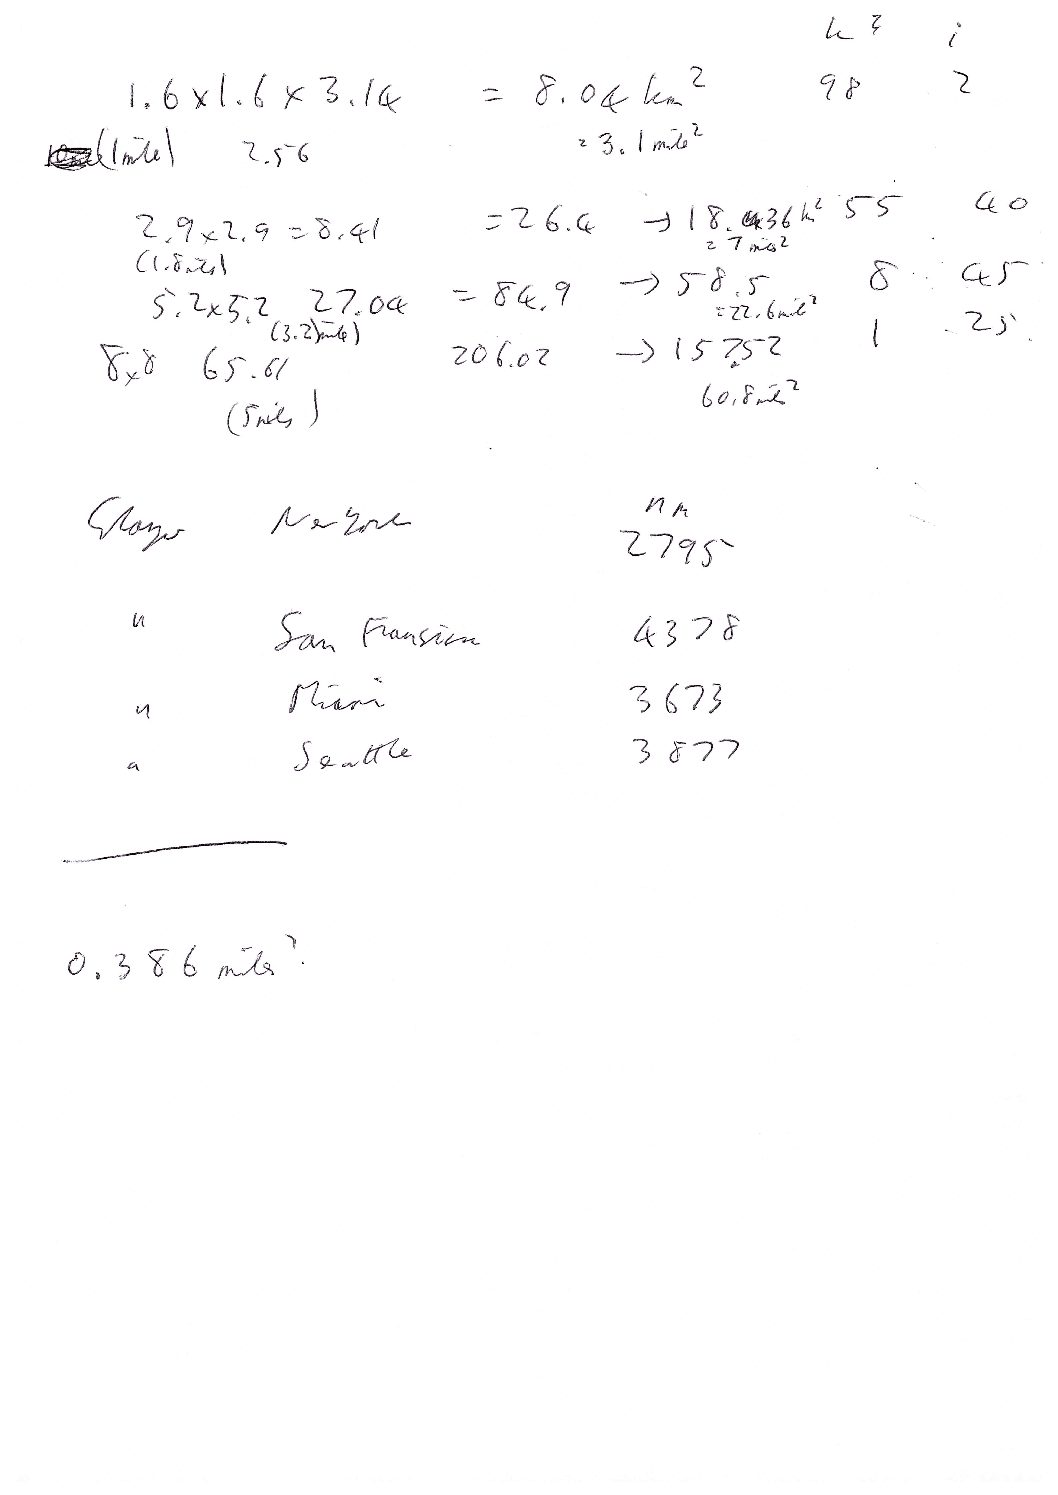 k i
1.6 x 1.6 x 3.14 = 8.04 km² 98 2
(1 mile) 2.56 = 3.1 mile²
2.9 x 2.9 = 8.41 = 26.4 → 18.36 k² 55 40
(1.8 miles) = 7 miles²
5.2 x 5.2 27.04 = 84.9 → 58.5 8 45
(3.2 mile) = 22.6 mile²
8 x 8 65.61 206.02 → 157.52 1 25
(5 miles) 60.8 miles²
nm
New York 2795
" San Fransisco 4378
" Miami 3673
" Seattle 3877
0.386 miles²